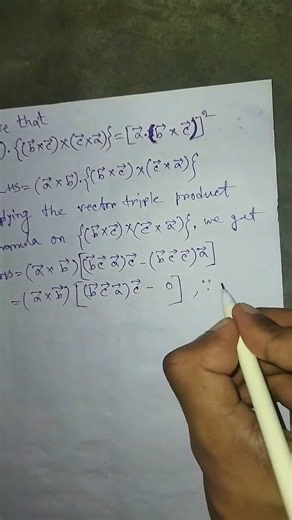 that
).{(b⃗×c⃗)×(c⃗×a⃗)}=[a⃗.(b⃗×c⃗)]²
LHS=(a⃗×b⃗).{(b⃗×c⃗)×(c⃗×a⃗)}
plying the vector triple product
ormula on {(b⃗×c⃗)×(c⃗×a⃗)}, we get
=(a⃗×b⃗)[(b⃗ c⃗ a⃗)c⃗-(b⃗ c⃗ c⃗)a⃗]
=(a⃗×b⃗)[(b⃗ c⃗ a⃗)c⃗- 0], ∵